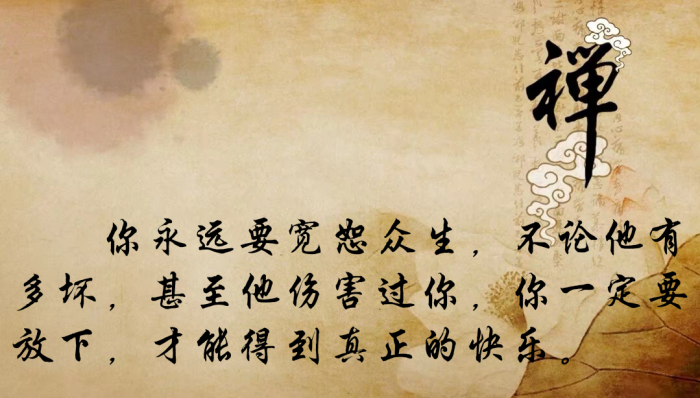 禅
你永远要宽恕众生，不论他有
多坏，甚至他伤害过你，你一定要
放下，才能得到真正的快乐。